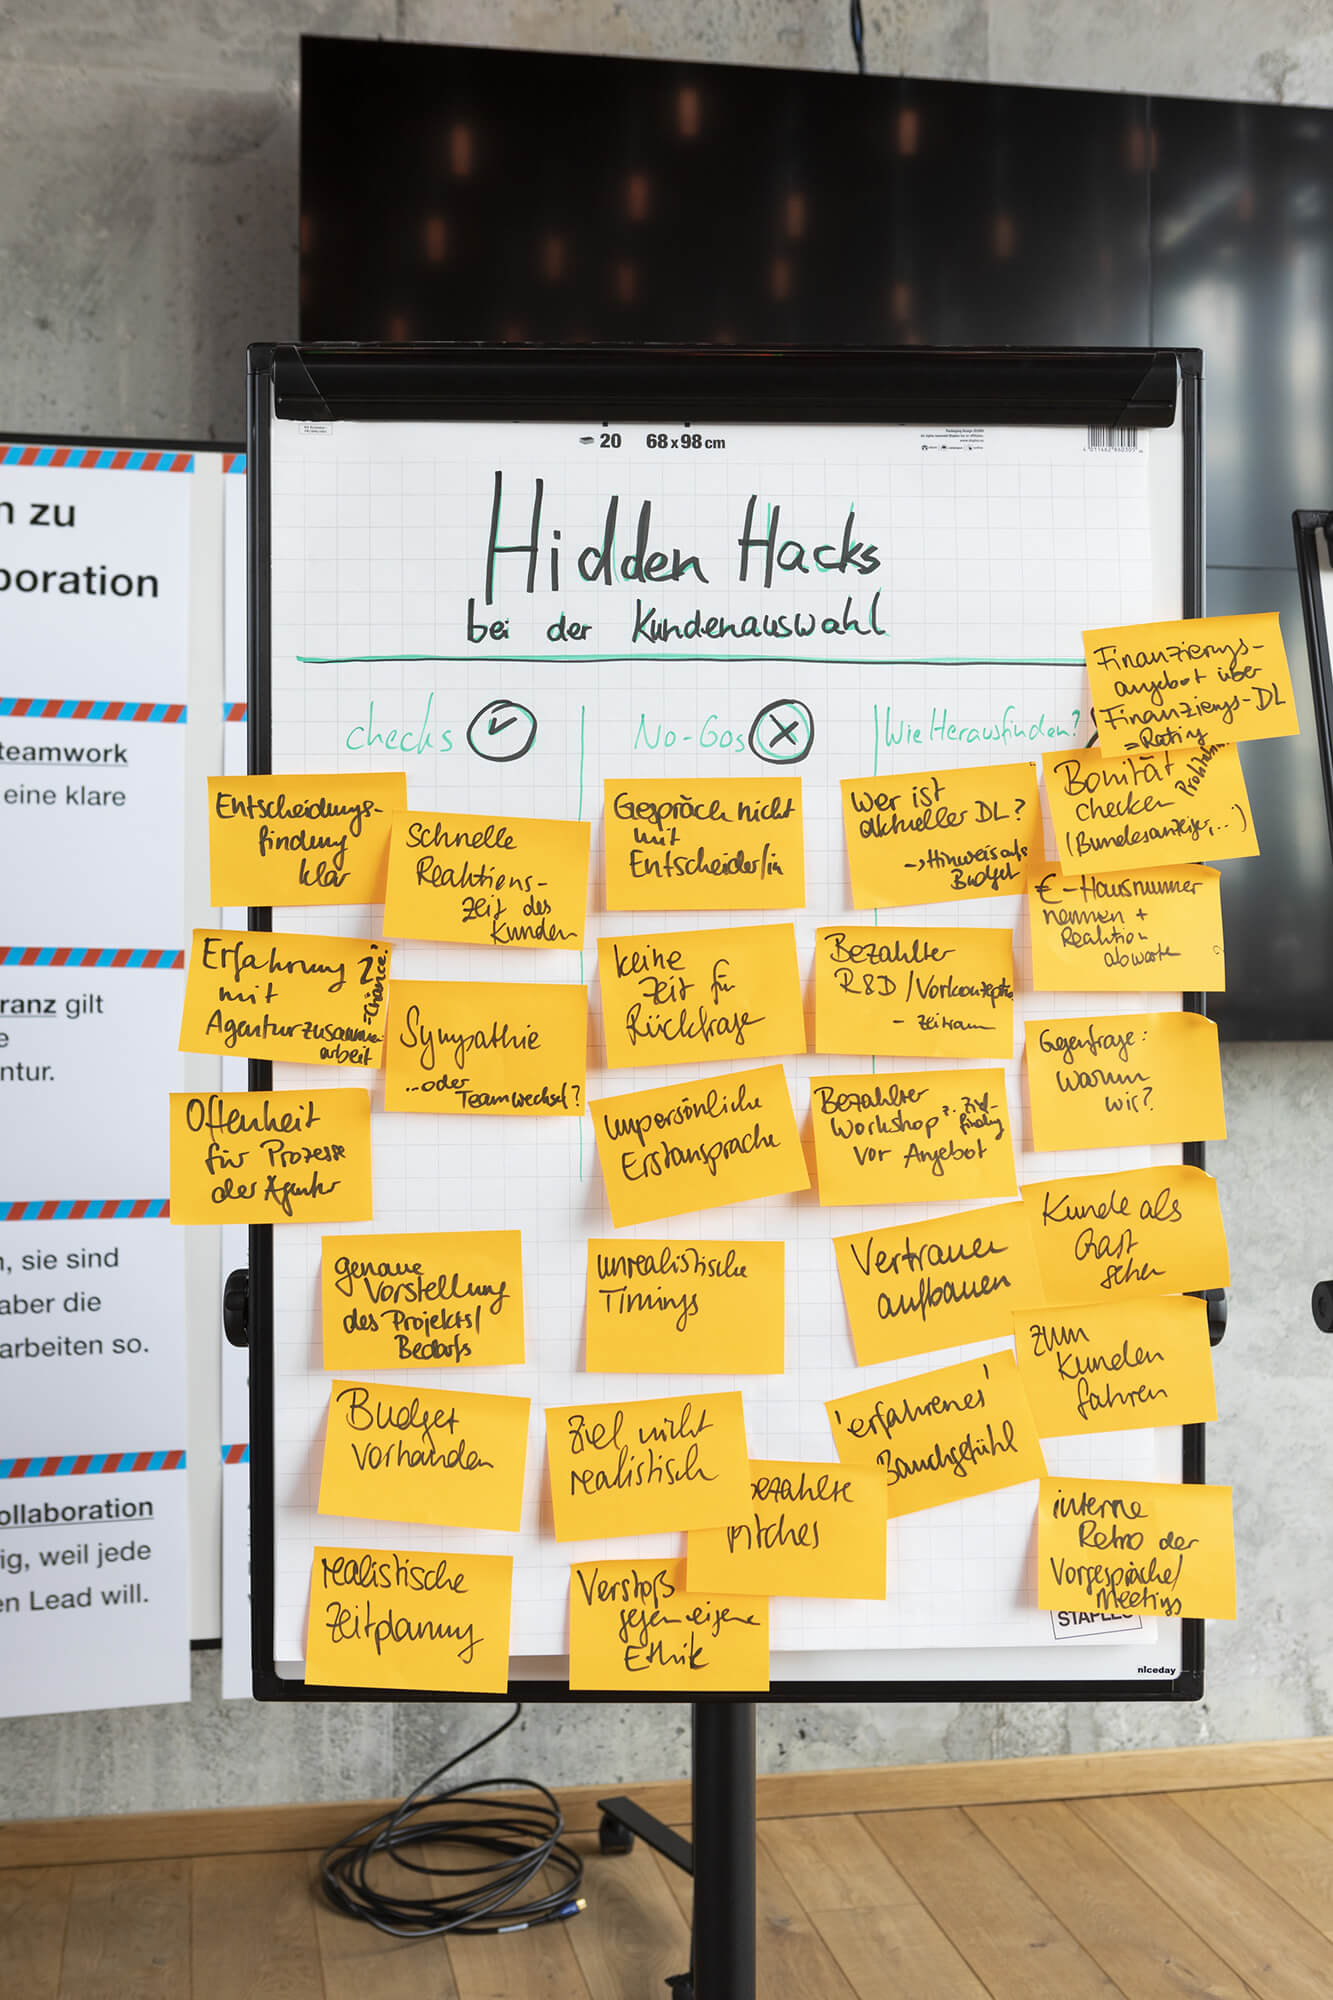 20 68 x 98 cm
Hidden Hacks
bei der Kundenauswahl
checks
No-Gos
Wie Herausfinden?
Entscheidungs-
findung
klar
Schnelle
Reaktions-
zeit des
Kunden
Erfahrung
mit
Agenturzusammen-
arbeit
=Chance?
Sympathie
...oder
Teamwechsel?
Offenheit
für Prozesse
der Agentur
genaue
Vorstellung
des Projekts/
Bedarfs
Budget
vorhanden
realistische
Zeitplanung
Gespräch nicht
mit
Entscheider/in
keine
Zeit für
Rückfrage
unpersönliche
Erstansprache
unrealistische
Timings
Ziel nicht
realistisch
bezahlte
Pitches
Verstoß
gegen eigene
Ethik
Wer ist
aktueller DL?
-> Hinweis aufs
Budget
Bezahlter
R&D / Vorkonzeption
- Zeitraum
Bezahlter
Workshop z. Ziel-
findung
vor Angebot
Vertrauen
aufbauen
'erfahrenes'
Bauchgefühl
Finanzierungs-
angebot über
Finanzierungs-DL
= Rating
Bonität
checken
(Bundesanzeiger,...)
€-Hausnummer
nennen +
Reaktion
abwarten
Gegenfrage:
warum
wir?
Kunde als
Gast
sehen
zum
Kunden
fahren
interne
Retro der
Vorgespräche/
Meetings
STAPLES
niceday
n zu
boration
teamwork
eine klare
ranz gilt
e
ntur.
n, sie sind
aber die
arbeiten so.
ollaboration
ig, weil jede
en Lead will.